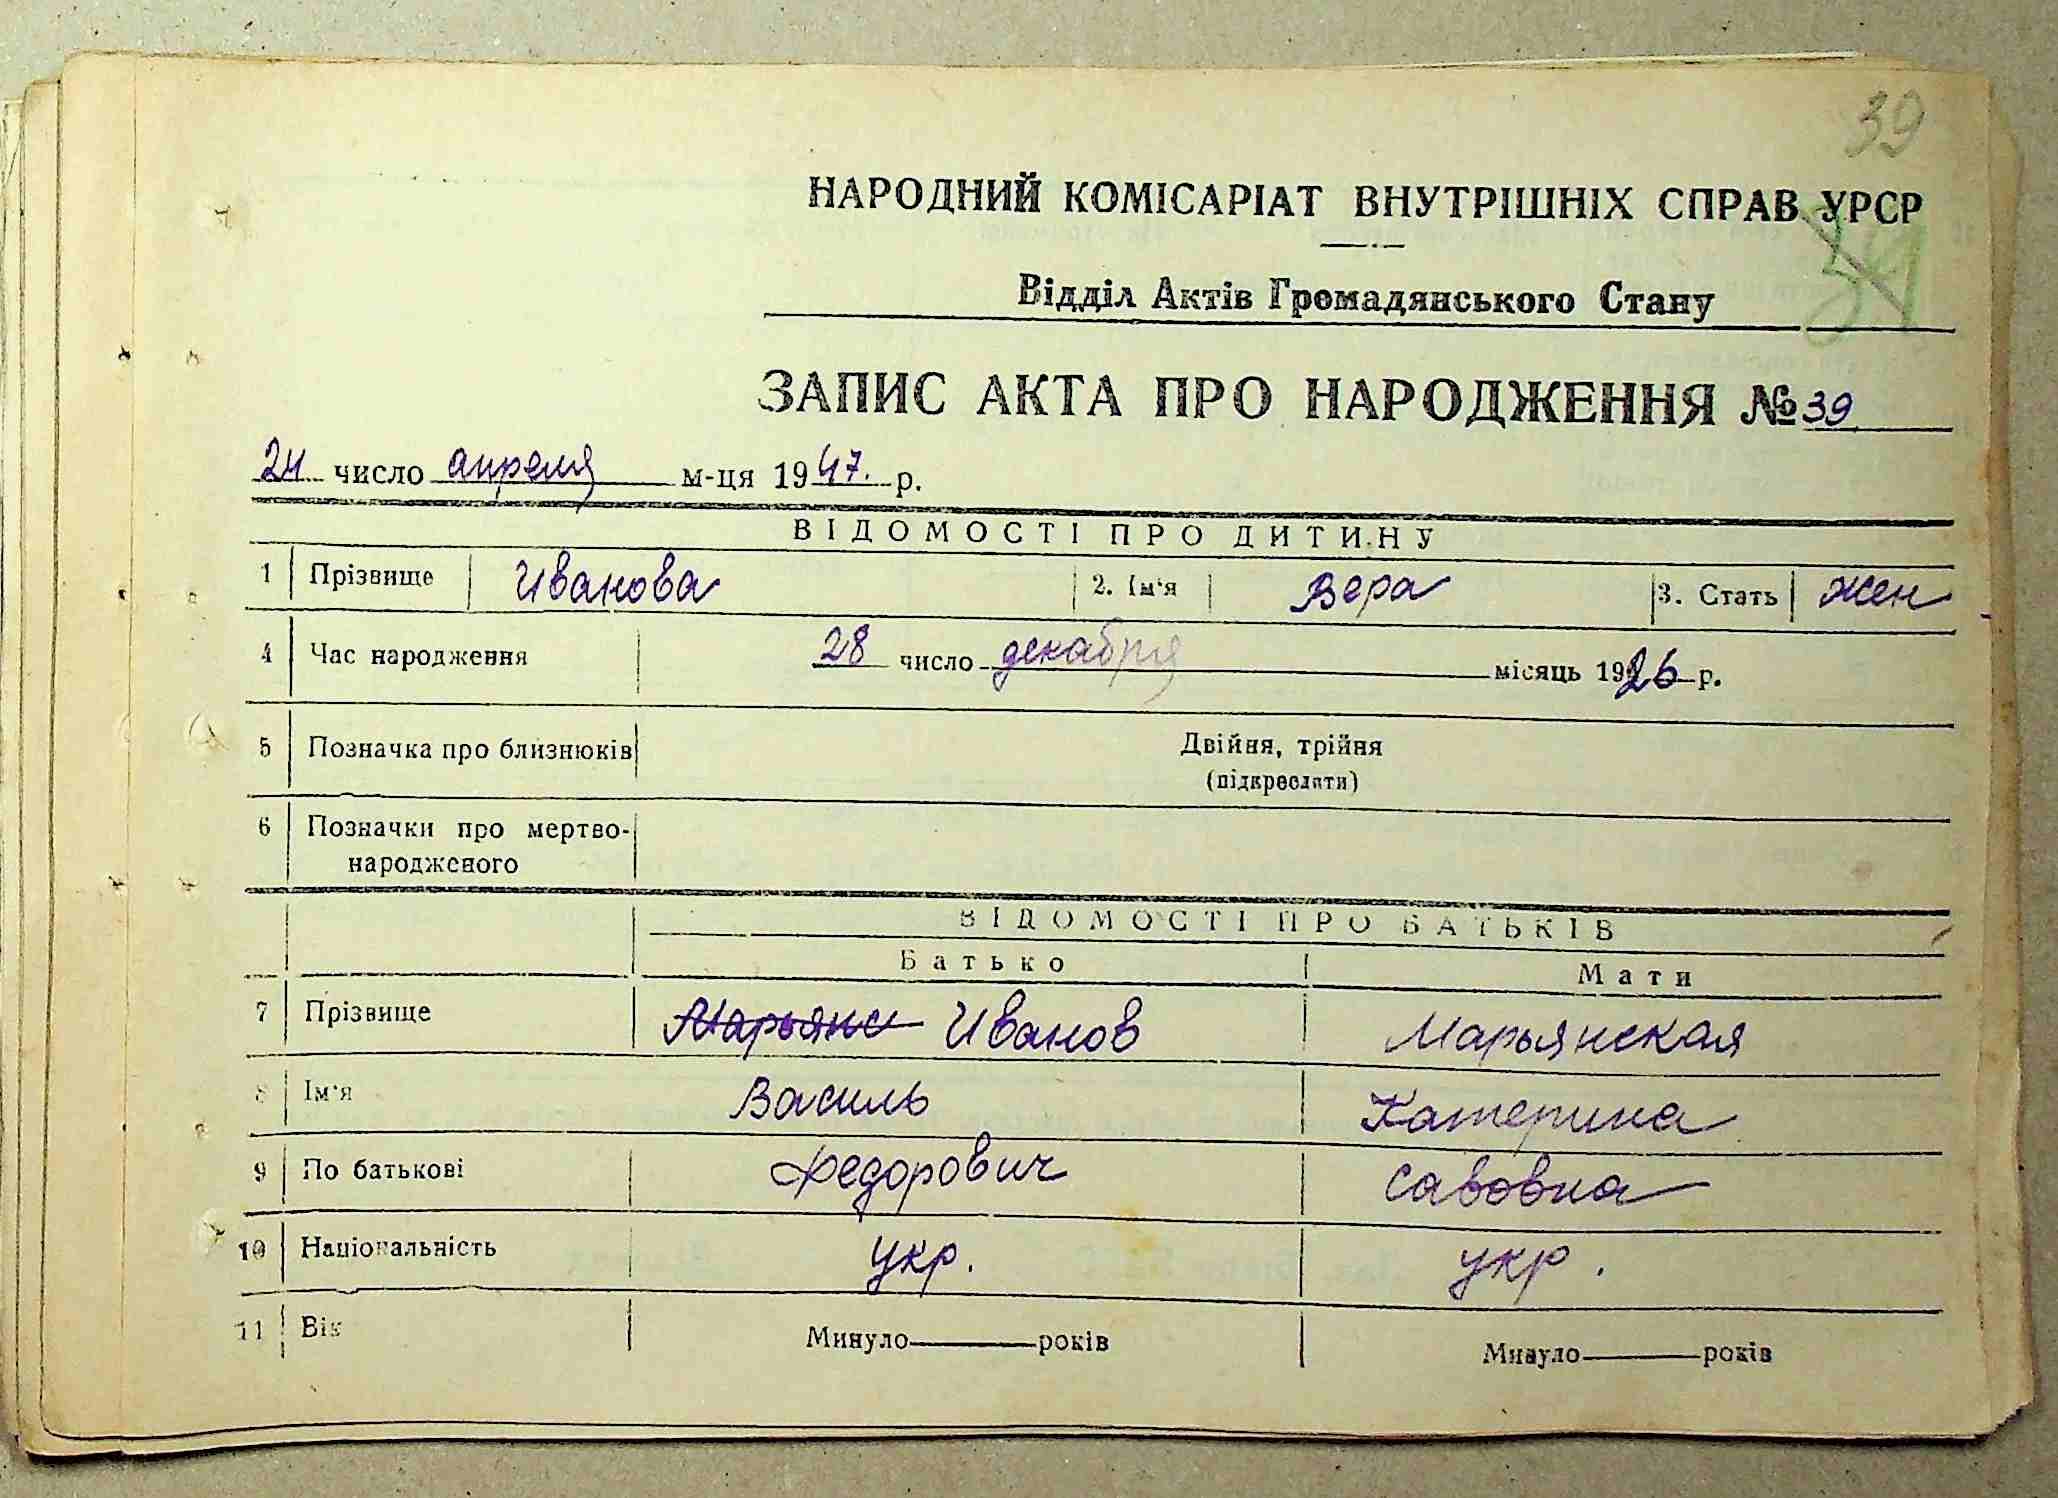 39
НАРОДНИЙ КОМІСАРІАТ ВНУТРІШНІХ СПРАВ УРСР
39
Відділ Актів Громадянського Стану
ЗАПИС АКТА ПРО НАРОДЖЕННЯ №39
24 число апреля м-ця 1947. р.
ВІДОМОСТІ ПРО ДИТИНУ
1 Прізвище Иванова 2. Ім'я Вера 3. Стать жен
4 Час народження 28 число декабря місяць 1926 р.
5 Позначка про близнюків Двійня, трійня
(підкреслити)
6 Позначки про мертво-
народженого
ВІДОМОСТІ ПРО БАТЬКІВ
Батько Мати
7 Прізвище Марьянс Иванов Марьянская
8 Ім'я Василь Катерина
9 По батькові Федорович Савовна
10 Національність укр. укр.
11 Вік Минуло років Минуло років